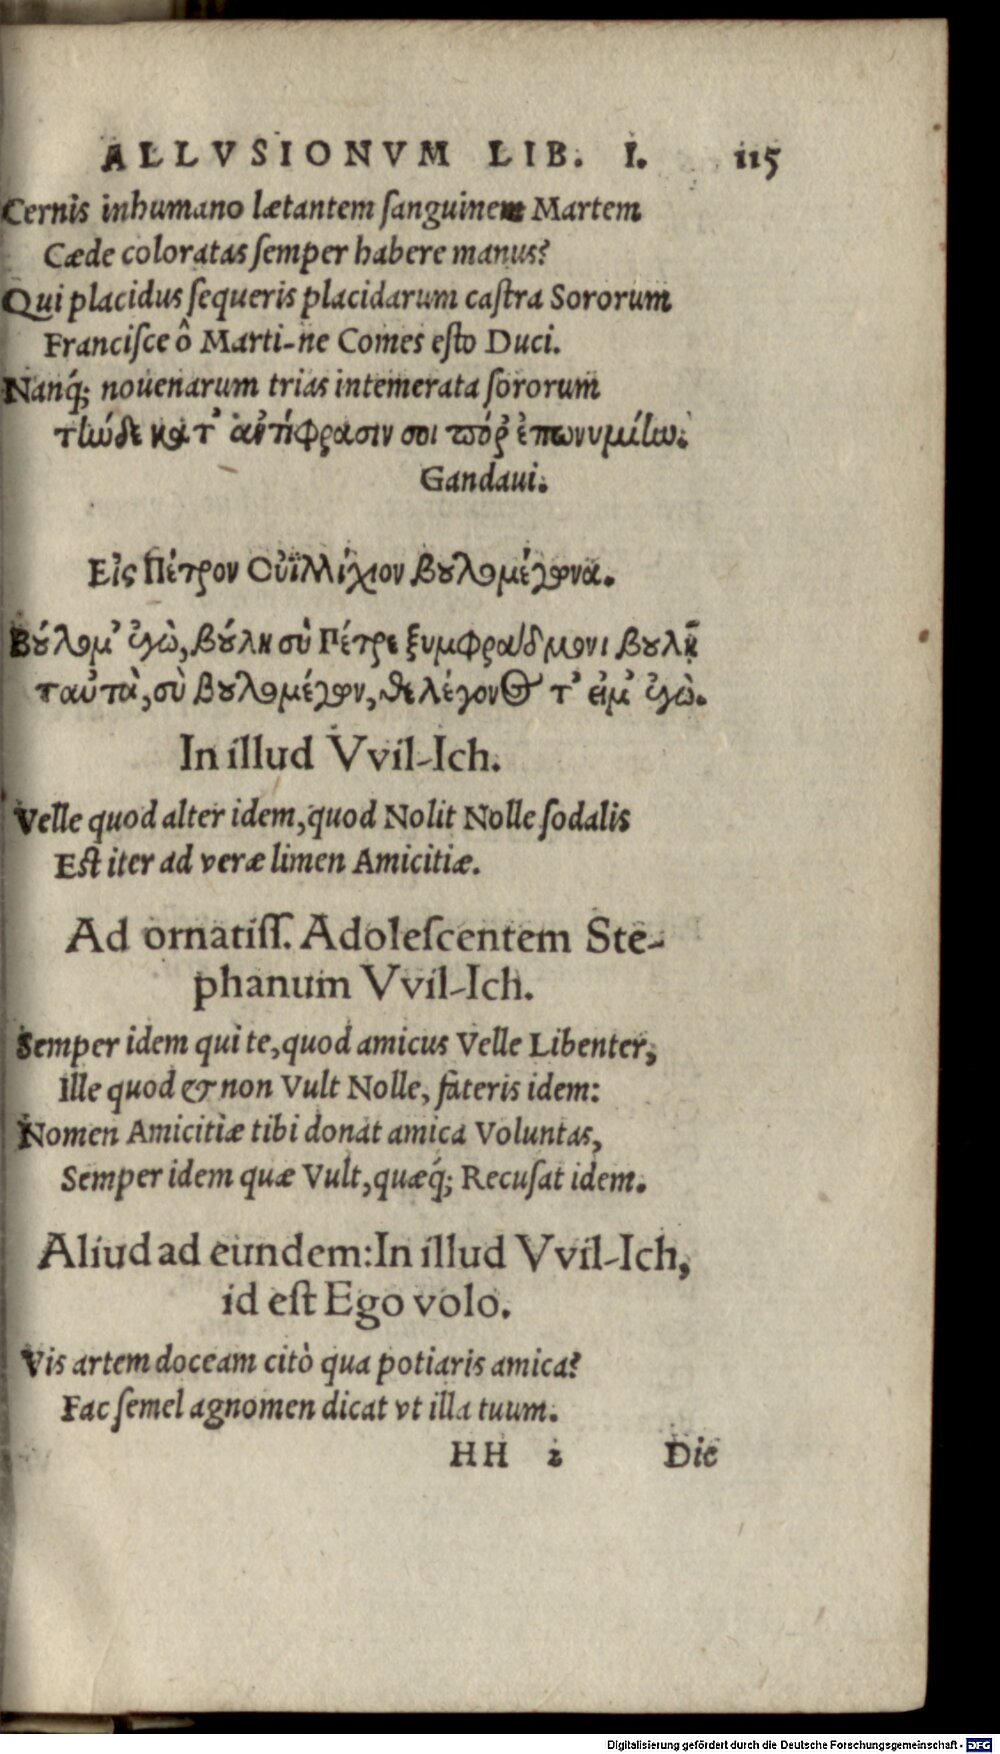 ALLVSIONVM LIB. I. 115
Cernis inhumano lætantem ſanguinem Martem
Cæde coloratas ſemper habere manus?
Qui placidus ſequeris placidarum caſtra Sororum
Franciſce ô Marti-ne Comes eſto Duci.
Nanq́; nouenarum trias intemerata ſororum
τίωδε κατ' ἀντίφρασιν σοι πόρ' ἐπωνυμίαν.
Gandaui.
Εἰς Πέτρον Οὐϊλλίχιον βȣλομέγωνα.
Βȣ́λομ' ἐγὼ, βȣ́λῃ σὺ Πέτρε ξυμφράδμονι βȣλῇ
ταὐτὰ, σὺ βȣλομέγων, θελέγοντος τ' εἰμ' ἐγὼ.
In illud Vvil-Ich.
Velle quod alter idem, quod Nolit Nolle ſodalis
Eſt iter ad veræ limen Amicitiæ.
Ad ornatiſſ. Adoleſcentem Ste-
phanum Vvil-Ich.
Semper idem qui te, quod amicus Velle Libenter,
Ille quod & non Vult Nolle, fateris idem:
Nomen Amicitiæ tibi donat amica Voluntas,
Semper idem quæ Vult, quæq́; Recuſat idem.
Aliud ad eundem: In illud Vvil-Ich,
id eſt Ego volo.
Vis artem doceam citò qua potiaris amica?
Fac ſemel agnomen dicat vt illa tuum.
HH 2 Dic
Digitalisierung gefördert durch die Deutsche Forschungsgemeinschaft - DFG